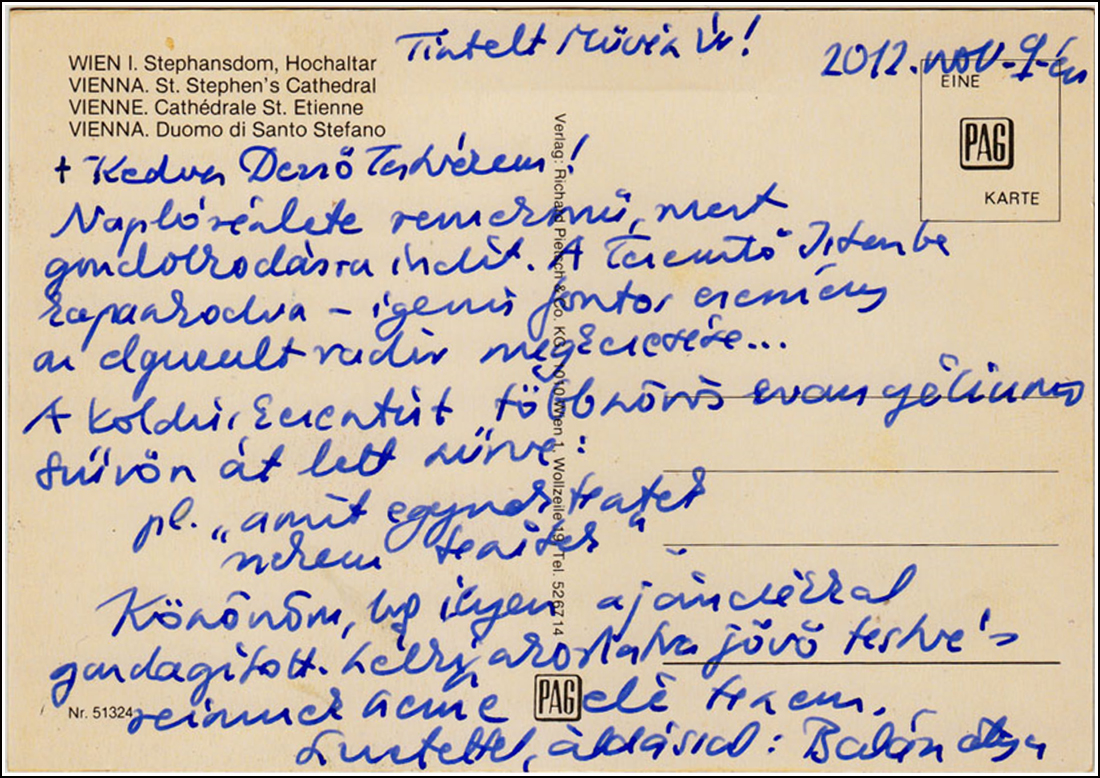 Tisztelt Művész Úr!
2012. nov. 9-én
WIEN I. Stephansdom, Hochaltar
VIENNA. St. Stephen's Cathedral
VIENNE. Cathédrale St. Etienne
VIENNA. Duomo di Santo Stefano
EINE
PAG
KARTE
Verlag: Richard Pietsch & Co. KG, 1010 Wien 1, Wollzeile 19, Tel. 526714
+ Kedves Dezső Testvérem!
Naplórészlete remekmű, mert
gondolkodásra indít. A Teremtő Istenbe
kapaszkodva – igenis fontos esemény
az elgurult radír megkeresése...
A koldus
többszörös evangéliumos
szűrőn át lett szűrve:
pl. „amit egynek tesztek
nekem teszitek"
Köszönöm, hogy ilyen ajándékkal
gazdagított. jövő testvé-
reimnek elé teszem.
Nr. 51324
PAG
Szeretettel, áldással: Balázs atya